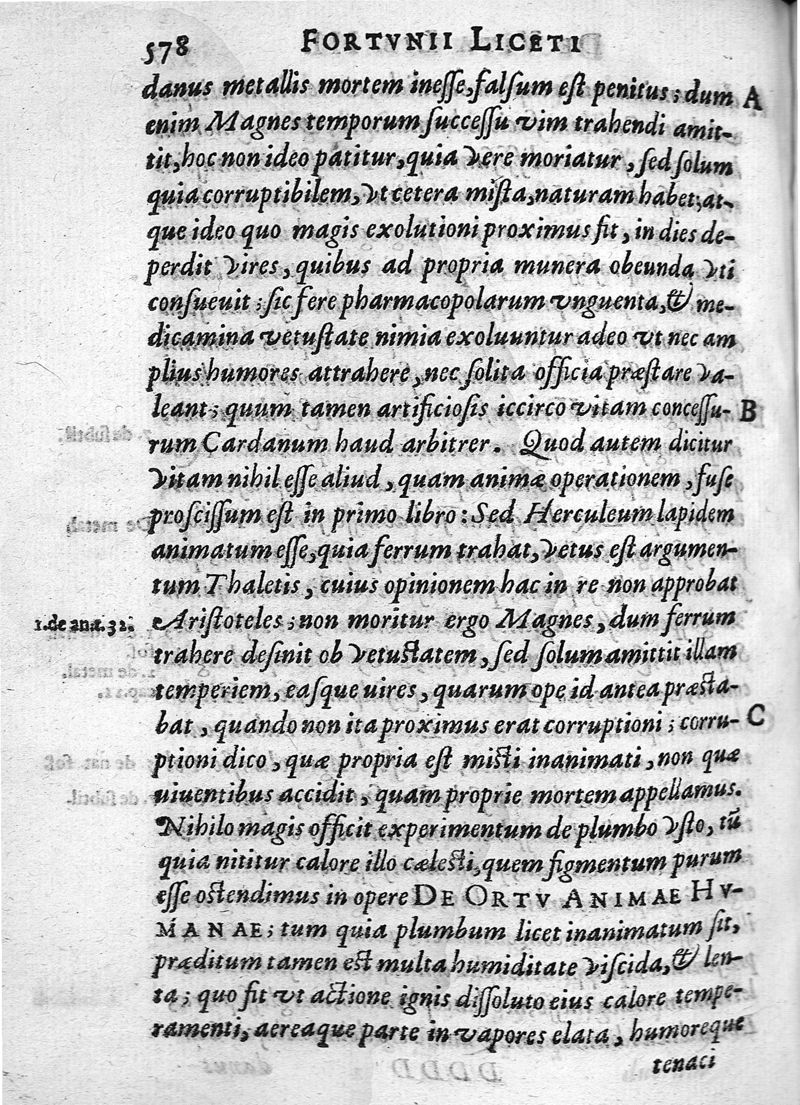 578 FORTVNII LICETI
danus metallis mortem inesse, falsum est penitus; dum A
enim Magnes temporum successu vim trahendi amit-
tit, hoc non ideo patitur, quia vere moriatur, sed solum
quia corruptibilem, vt cetera mista, naturam habet; at-
que ideo quo magis exolutioni proximus fit, in dies de-
perdit vires, quibus ad propria munera obeunda vti
consueuit; sic fere pharmacopolarum vnguenta, & me-
dicamina vetustate nimia exoluuntur adeo vt nec am
plius humores attrahere, nec solita officia præstare va-
leant; quum tamen artificiosis iccirco vitam concessu- B
rum Cardanum haud arbitrer. Quod autem dicitur
vitam nihil esse aliud, quam animæ operationem, fuse
proscissum est in primo libro: Sed Herculeum lapidem
animatum esse, quia ferrum trahat, vetus est argumen-
tum Thaletis, cuius opinionem hac in re non approbat
1. de an. t. 32. Aristoteles; non moritur ergo Magnes, dum ferrum
trahere desinit ob vetustatem, sed solum amittit illam
temperiem, easque uires, quarum ope id antea præsta-
bat, quando non ita proximus erat corruptioni; corru- C
ptioni dico, quæ propria est misti inanimati, non quæ
uiuentibus accidit, quam proprie mortem appellamus.
Nihilo magis officit experimentum de plumbo vsto, tũ
quia nititur calore illo cælesti, quem figmentum purum
esse ostendimus in opere DE ORTV ANIMAE HV-
MANAE; tum quia plumbum licet inanimatum sit,
præditum tamen est multa humiditate viscida, & len-
ta; quo fit vt actione ignis dissoluto eius calore tempe-
ramenti, aereaque parte in vapores elata, humoreque
tenaci